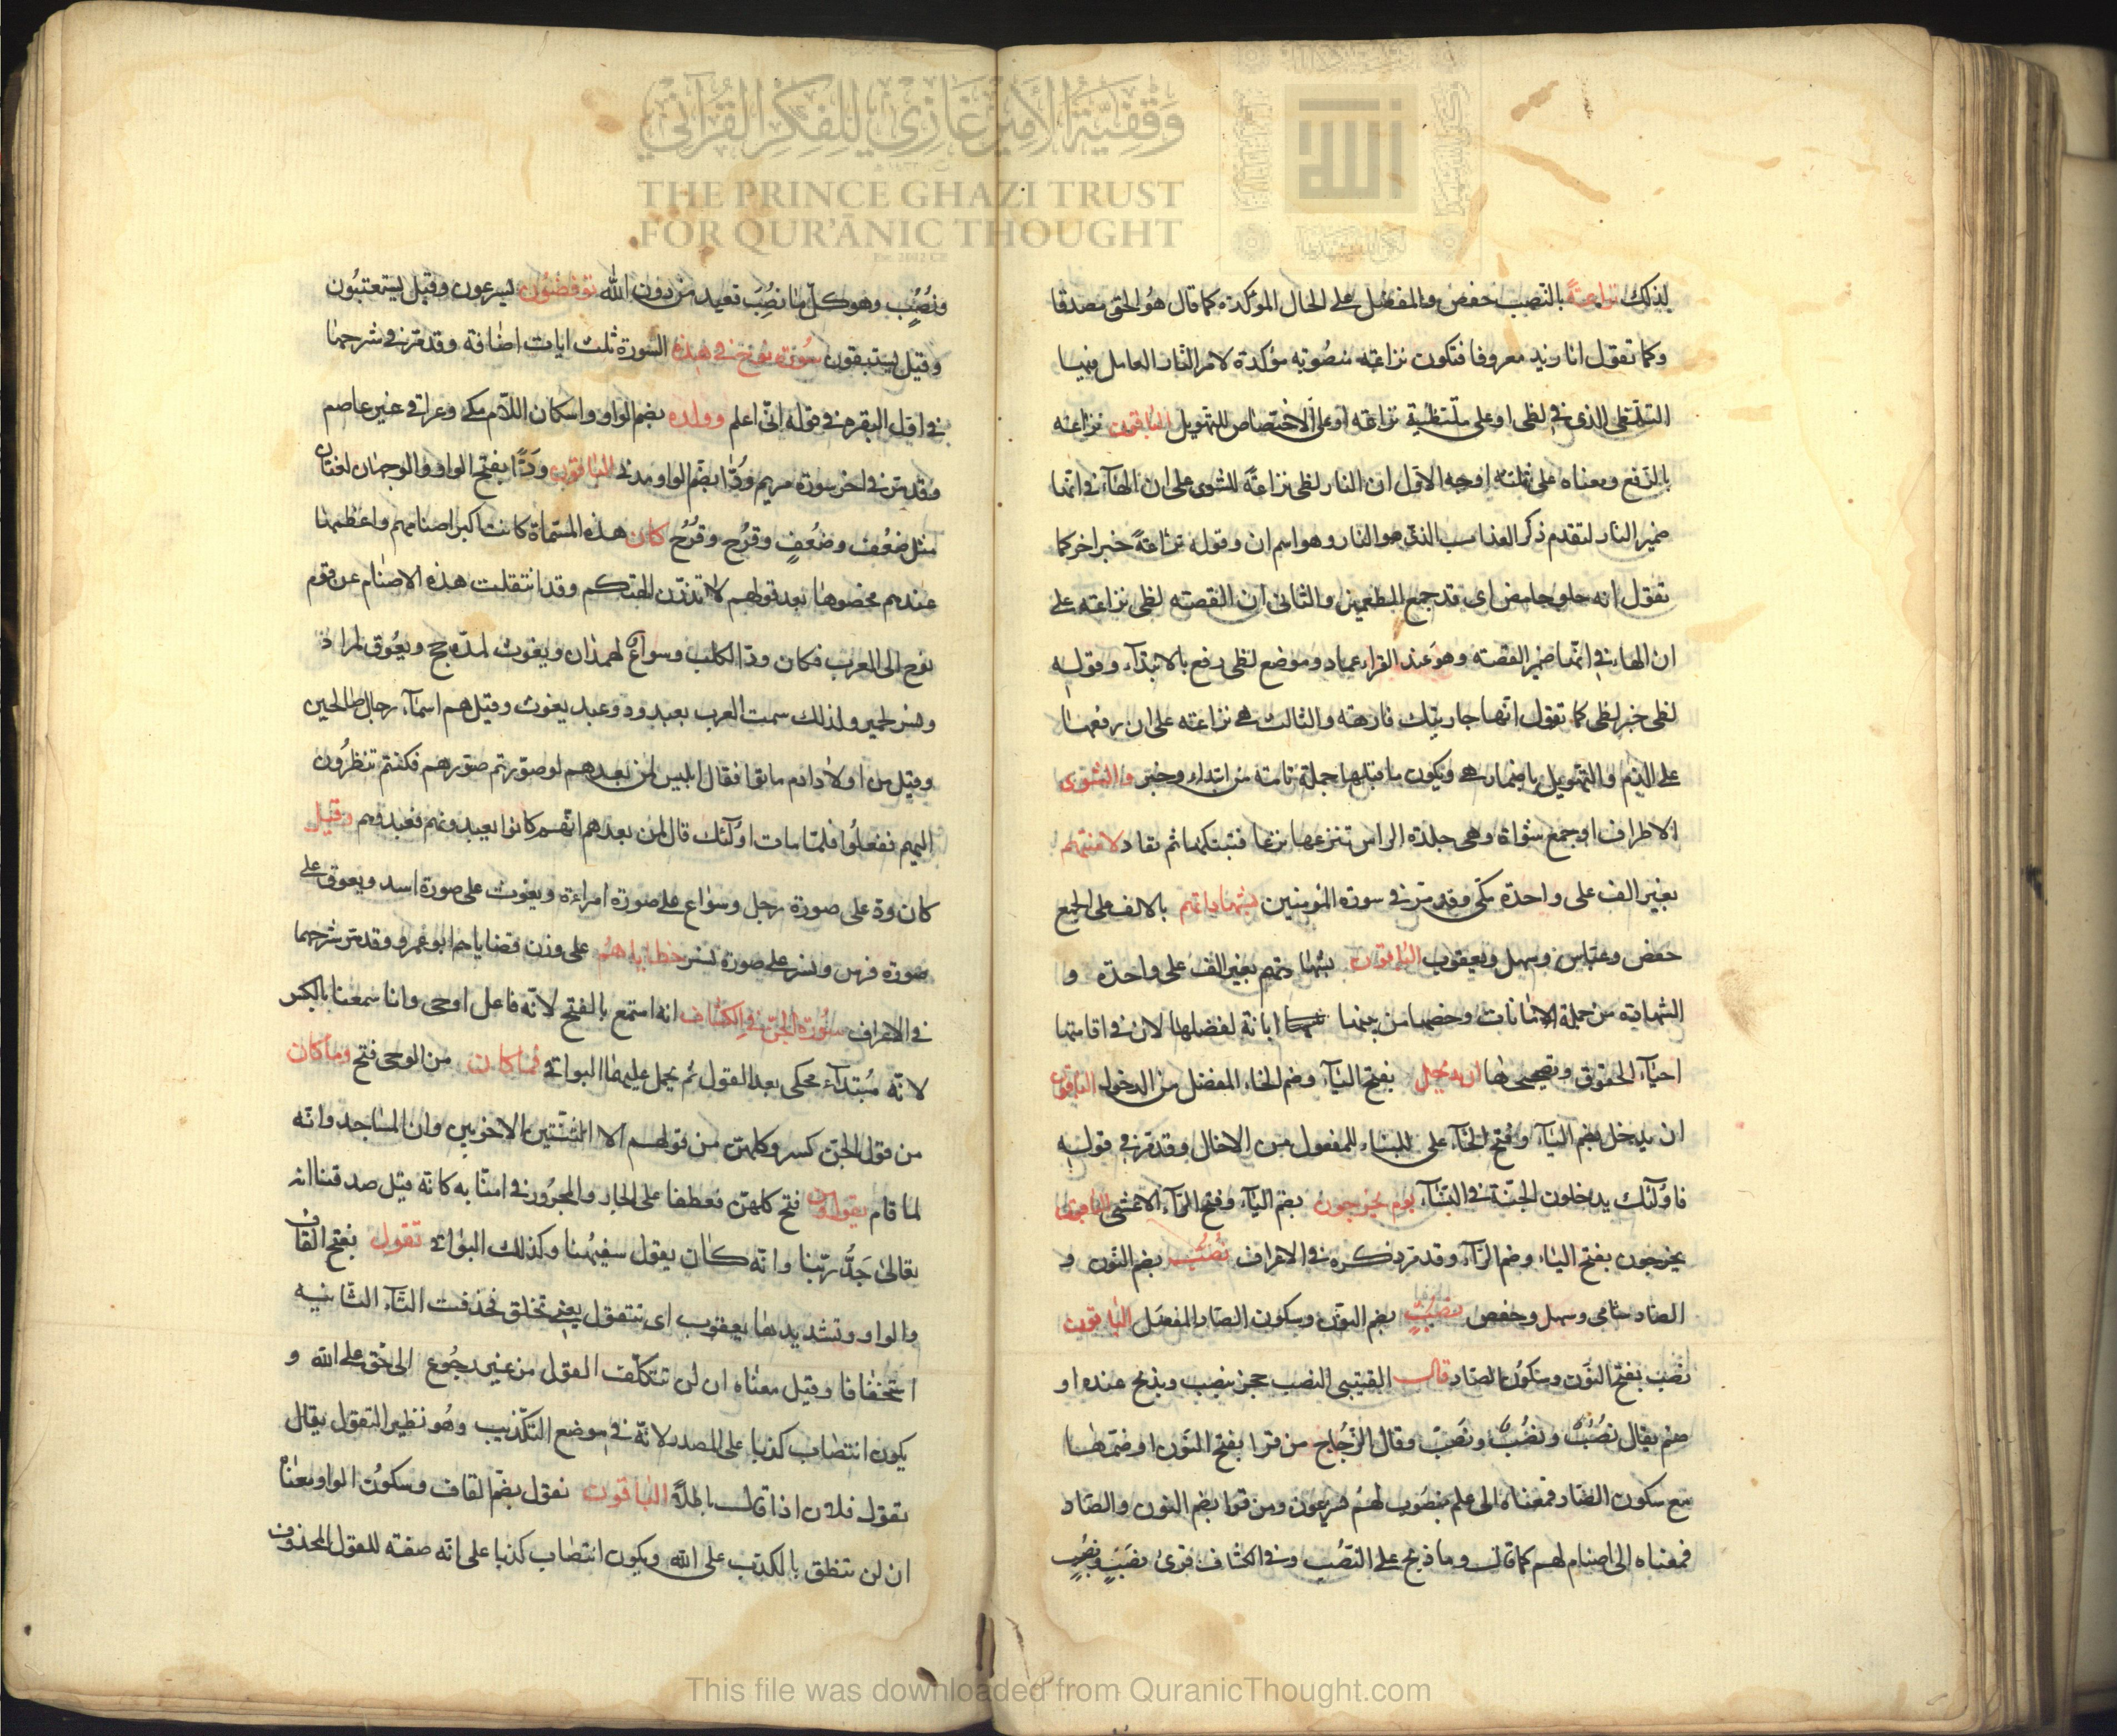 وقفية الأمير غازي للفكر القرآني
THE PRINCE GHAZI TRUST
FOR QUR'ĀNIC THOUGHT
لذلك نزاعةً بالنصب حفص والمفضل على الحال المؤكدة كما قال هو الحق مصدقا
وكما تقول انا زيد معروفا فتكون نزاعة منصوبة مؤكدة لامر النار العامل فيها
التلظى الذى فى لظى او على متلظية نزاعة او على الاختصاص للتهويل الباقون نزاعة
بالرفع ومعناه على ثلثة اوجه الاول ان النار لظى نزاعةً للشوى على ان الهآء فى انها
ضمير النار لتقدم ذكر العذاب الذى هو النار وهو اسم ان وقوله نزاعةً خبر اخر كما
تقول انه حلو حامض اى قد جمع الطعمين والثانى ان القصة لظى نزاعة على
ان الهاء فى انها ضمير القصة وهو عند الفراء عماد وموضع لظى رفع بالابتدآء وقوله
لظى خبر لظى كما تقول انها جاريتك فارهة والثالث هى نزاعة على ان رفعها
على الذم والتهويل باضمار هى ويكون ما قبلها جملة تامة من ابتداء وخبر والشوى
الاطراف او جمع شواة وهى جلدة الراس تنزعها نزعا فتبتكها ثم تعاد لامنتهم
بغير الف على واحدة مكى وقد مر فى سورة المومنين بشهاداتهم بالالف على الجمع
حفص وعباس وسهل ويعقوب الباقون بشهادتهم بغير الف على واحدة و
الشهادة من جملة الامانات وخصها من بينها ابانة لفضلها لان فى اقامتها
احيآء الحقوق وتصحيحها ان يدخل بفتح اليآء وضم الخاء المفضل من الدخول الباقون
ان يدخل بضم اليآء وفتح الخآء على البناء للمفعول من الادخال وقد مر فى قوله
فاولٓئك يدخلون الجنة فى النسآء يوم يخرجون بضم اليآء وفتح الرآء الاعشى الباقون
يخرجون بفتح الياء وضم الرآء وقد مر ذكره فى الاعراف نُصُبٍ بضم النون و
الصاد شامى وسهل وحفص نُصْبٍ بضم النون وسكون الصاد المفضل الباقون
نَصْب بفتح النون وسكون الصاد قال القتيبى النصب حجر ينصب ويذبح عنده او
صنم يقال نُصُبٌ ونُصْبٌ ونَصْبٌ وقال الزجاج من قرا بفتح النون او ضمها
مع سكون الصاد فمعناه الى علم منصوب لهم يسرعون ومن قرا بضم النون والصاد
فمعناه الى اصنام لهم كما قال وما ذبح على النصُب وفى الكشاف قرئ نصْب ونصُبٍ
ونُصُبٍ وهو كل ما نُصِبَ تعبد من دون الله توفضون يسرعون وقيل يستعتبون
وقيل يستبقون سورة نوح فى هذه السورة ثلث ايات اضافة وقد مر فى شرحها
فى اول البقرة فى قوله انى اعلم وولده بضم الواو واسكان اللام مكى وعراقى غير عاصم
وقد مر فى اخر سورة مريم وُدًّا بضم الواو مدنى الباقون وَدًّا بفتح الواو والوجهان لغتان
مثل ضَعْف وضُعْفٍ وقَرْح وقُرْح كان هذه المسماة كانت اكبر اصنامهم واعظمها
عندهم فخصوها بعد قولهم لا تذرن الهتكم وقد انتقلت هذه الاصنام عن قوم
نوح الى العرب فكان ود الكلب وسواع لهمذان ويغوث لمذحج ويعوق لمراد
ونسر لحمير ولذلك سمت العرب بعبد ود وعبد يغوث وقيل هم اسمآء رجال صالحين
وقيل من اولاد ادم ماتوا فقال ابليس لمن بعدهم لو صورتم صورهم فكنتم تنظرون
اليهم ففعلوا فلما مات اولٓئك قال لمن بعدهم انهم كانوا يعبدونهم فعبدوهم وقيل
كان ود على صورة رجل وسواع على صورة امراءة ويغوث على صورة اسد ويعوق على
صورة فرس ونسر على صورة نسر خطاياهم على وزن قضاياهم ابو عمرو وقد مر شرحهما
فى الاعراف سورة الجن فى الكشاف انه استمع بالفتح لانه فاعل اوحى وانا سمعنا بالكسر
لانه مبتدآء محكى بعد القول ثم يحمل عليهما البواقى فما كان من الوحى فتح وما كان
من قول الجن كسر وكلهن من قولهم الا الثنتين الاخريين وان المساجد وانه
لما قام يقولون فتح كلهن فعطفا على الجار والمجرور فى امنا به كانه قيل صدقنا انه
تعالى جَدُّ ربنا وانه كان يقول سفيهنا وكذلك البواقى تقول بفتح القاف
والواو وتشديدها يعقوب اى تتقول يعنى تختلق فحذفت التآء الثانيه
استخفافا وقيل معناه ان لن تتكلف القول من غير رجوع الى حق على الله و
يكون انتصاب كذبا على المصدر لانه فى موضع التكذيب وهو نظير التقول يقال
تقول فلان اذا قال باطلاً الباقون تقول بضم القاف وسكون الواو ومعناه
ان لن تنطق بالكذب على الله ويكون انتصاب كذبا على انه صفة للقول المحذوف
This file was downloaded from QuranicThought.com